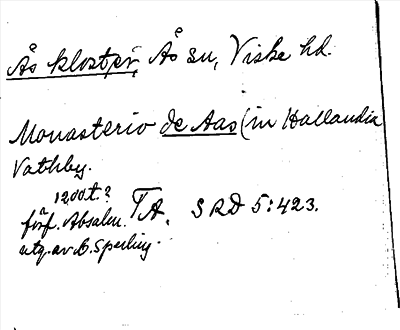 Ås kloster, Ås su, Viske hd.
Monasterio de Aas (in Hallandia
Vathby.
1200t.?
förf. Absalon. TA. SRD 5:423.
utg. av O. Sperling.